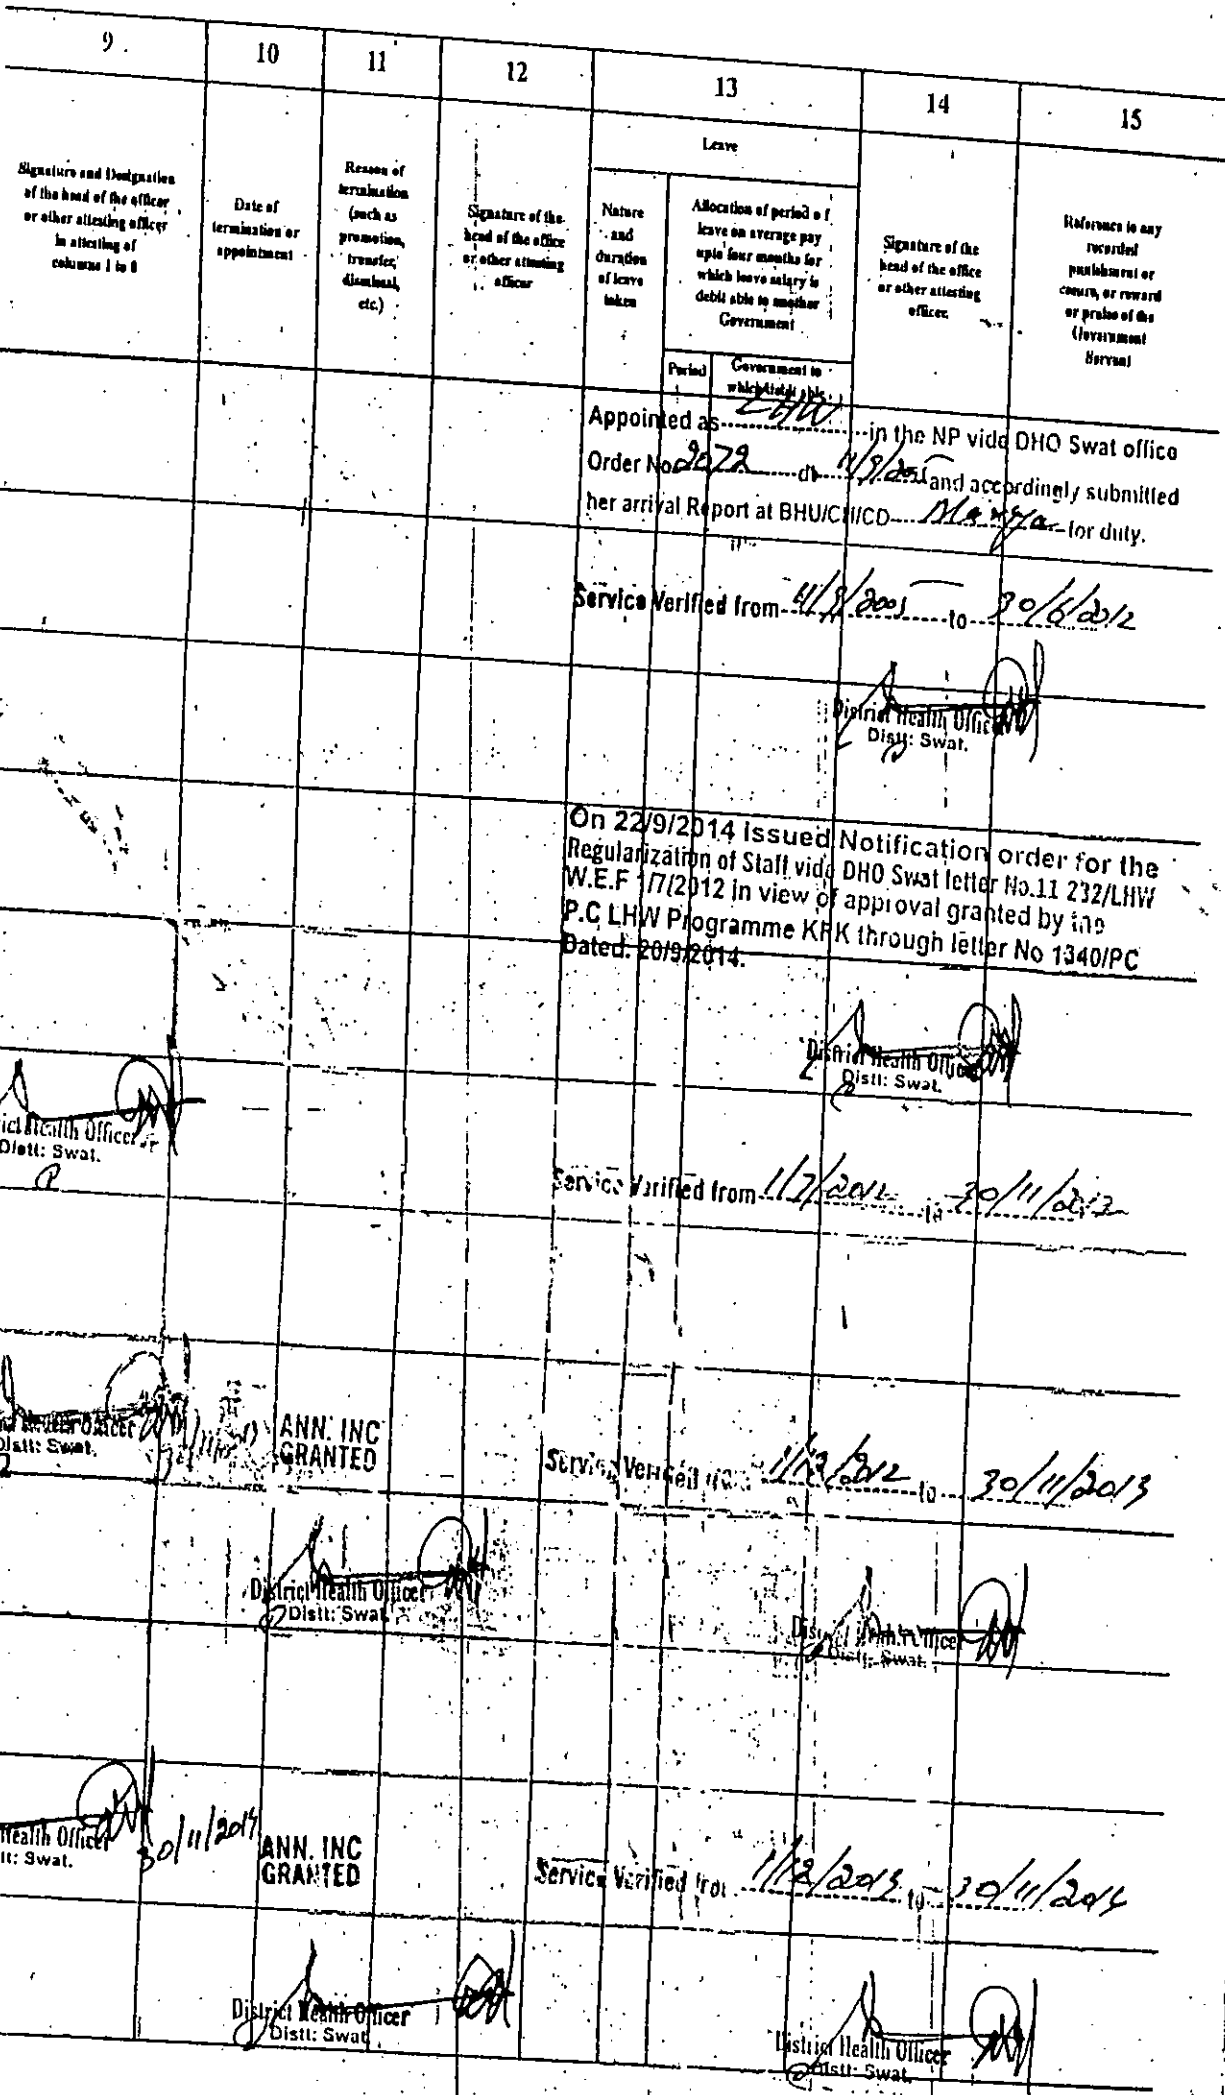 9. 10 11 12 13 14 15
Signature and Designation
of the head of the officer
or other attesting officer
in attesting of
columns 1 to 8
Date of
termination or
appointment
Reason of
termination
(such as
promotion,
transfer,
dismissal,
etc.)
Signature of the
head of the office
or other attesting
officer
Leave
Nature
and
duration
of leave
taken
Allocation of period of
leave on average pay
upto four months for
which leave salary is
debit able to another
Government
Period
Government to
which debit able
Signature of the
head of the office
or other attesting
officer.
Reference to any
recorded
punishment or
censure, or reward
or praise of the
Government
Servant
Appointed as LHW in the NP vide DHO Swat office
Order No 2072 dt and accordingly submitted
her arrival Report at BHU/CH/CD for duty.
Service Verified from to 30/6/2012
District Health Officer
Distt: Swat.
On 22/9/2014 issued Notification order for the
Regularization of Staff vide DHO Swat letter No.11 232/LHW
W.E.F 1/7/2012 in view of approval granted by the
P.C LHW Programme KPK through letter No 1340/PC
Dated: 20/9/2014.
District Health Officer
Distt: Swat.
Health Officer
Distt: Swat.
Service Verified from 1/7/2012 to
Distt: Swat.
ANN. INC
GRANTED
Service Verified from 1/12/2012 to 30/11/2013
District Health Officer
Distt: Swat.
District Health Officer
Distt: Swat.
Health Officer
Swat.
30/11/2014
ANN. INC
GRANTED
Service Verified from 1/12/2013 to 30/11/2014
District Health Officer
Distt: Swat
District Health Officer
Distt: Swat.